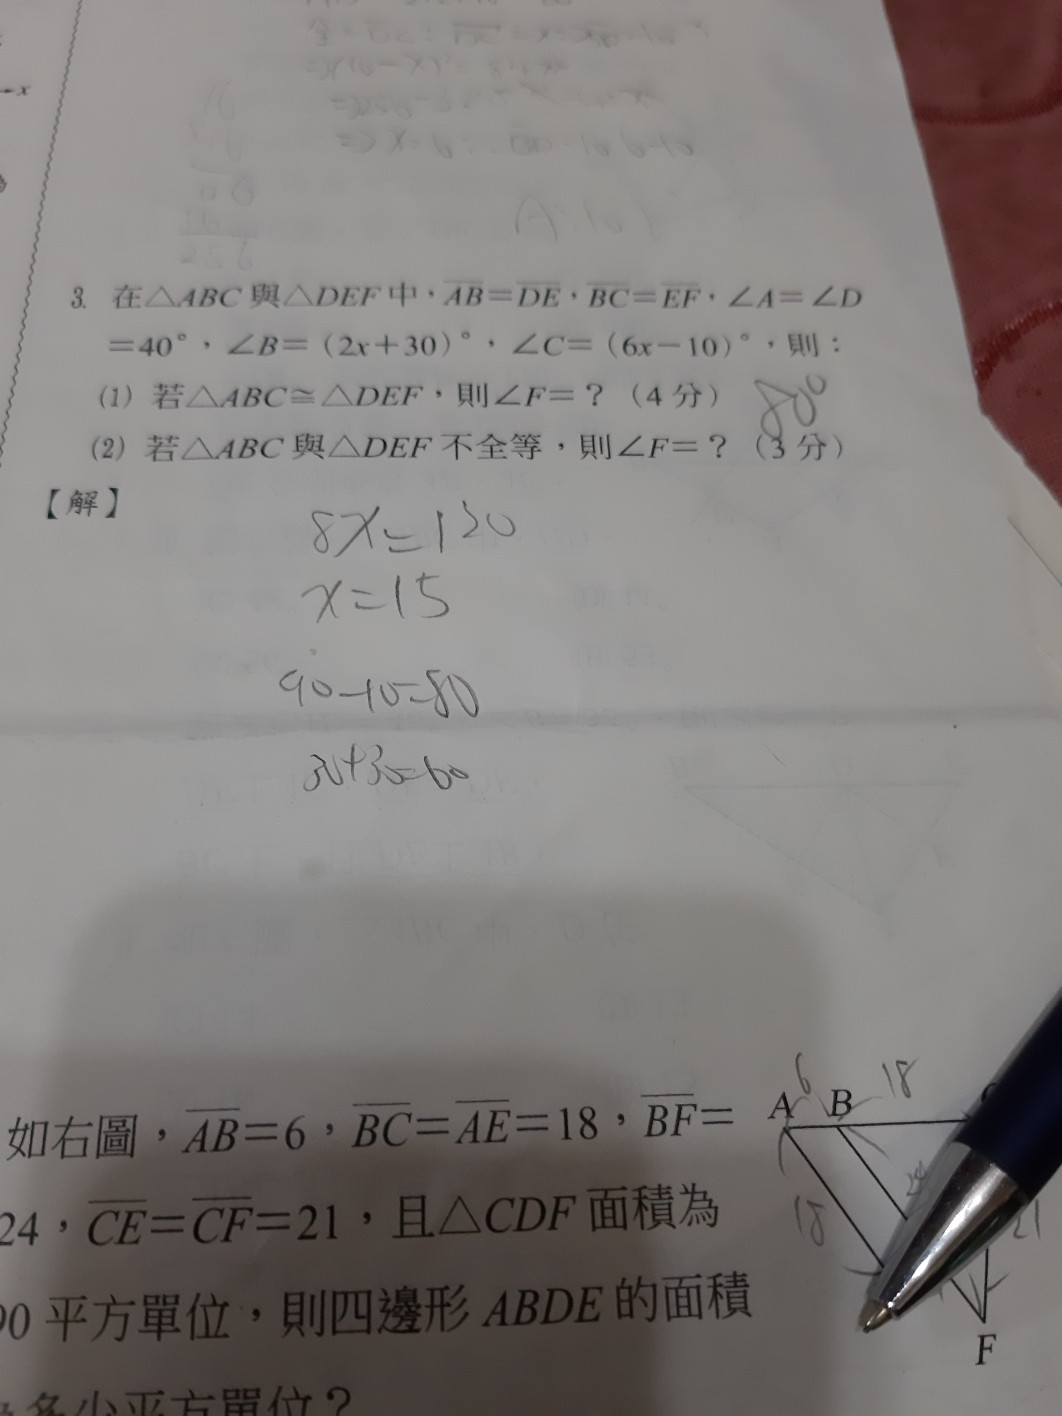 -x
3. 在△ABC與△DEF中，AB=DE，BC=EF，∠A=∠D
=40°，∠B=(2x+30)°，∠C=(6x-10)°，則：
(1) 若△ABC≅△DEF，則∠F=？(4分) 80°
(2) 若△ABC與△DEF不全等，則∠F=？(3分)
【解】
8x=120
x=15
90-10=80
30+30=60
如右圖，AB=6，BC=AE=18，BF=
24，CE=CF=21，且△CDF面積為
90平方單位，則四邊形ABDE的面積
多少平方單位？
6 18
A B
18 24 21
F